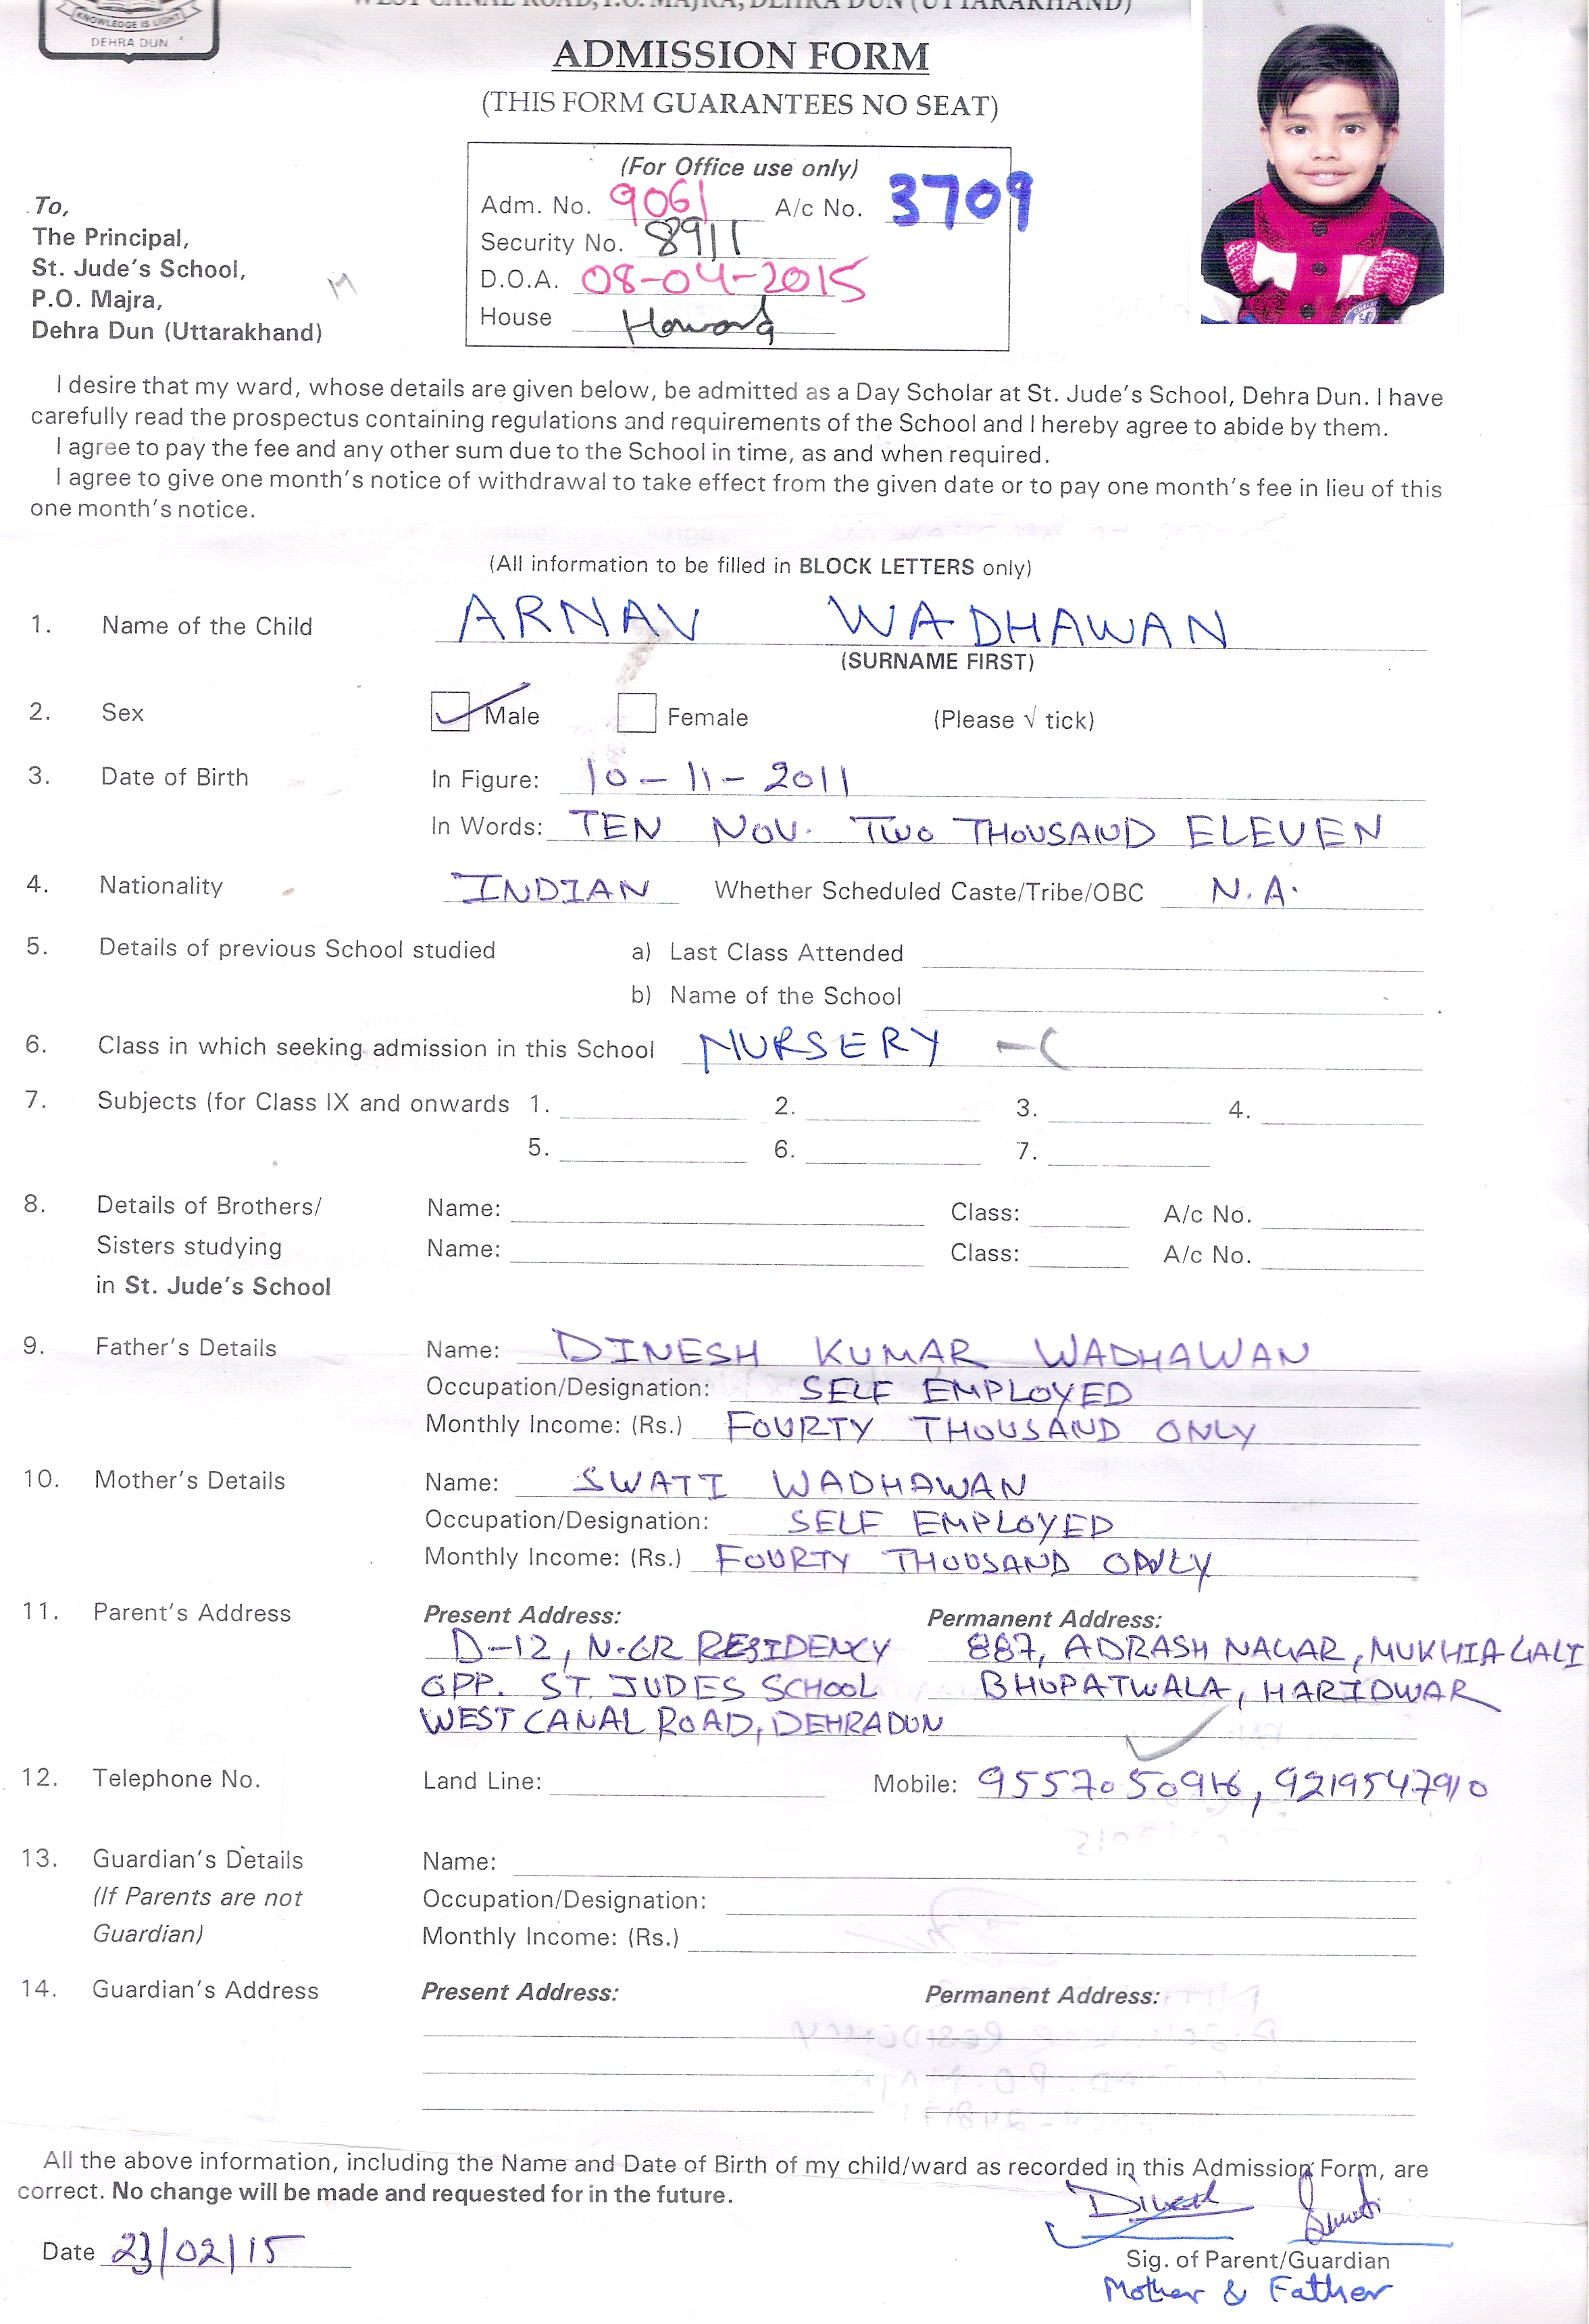 WEST CANAL ROAD, P.O. MAJRA, DEHRA DUN (UTTARAKHAND)
KNOWLEDGE IS LIGHT
DEHRA DUN
ADMISSION FORM
(THIS FORM GUARANTEES NO SEAT)
(For Office use only)
Adm. No. 9061 A/c No. 3709
Security No. 8911
D.O.A. 08-04-2015
House Howard
To,
The Principal,
St. Jude's School,
P.O. Majra,
Dehra Dun (Uttarakhand)
I desire that my ward, whose details are given below, be admitted as a Day Scholar at St. Jude's School, Dehra Dun. I have
carefully read the prospectus containing regulations and requirements of the School and I hereby agree to abide by them.
I agree to pay the fee and any other sum due to the School in time, as and when required.
I agree to give one month's notice of withdrawal to take effect from the given date or to pay one month's fee in lieu of this
one month's notice.
(All information to be filled in BLOCK LETTERS only)
1. Name of the Child ARNAV WADHAWAN
(SURNAME FIRST)
2. Sex Male Female (Please √ tick)
3. Date of Birth In Figure: 10-11-2011
In Words: TEN NOV. TWO THOUSAND ELEVEN
4. Nationality INDIAN Whether Scheduled Caste/Tribe/OBC N.A.
5. Details of previous School studied a) Last Class Attended
b) Name of the School
6. Class in which seeking admission in this School NURSERY -C
7. Subjects (for Class IX and onwards 1. 2. 3. 4.
5. 6. 7.
8. Details of Brothers/ Name: Class: A/c No.
Sisters studying Name: Class: A/c No.
in St. Jude's School
9. Father's Details Name: DINESH KUMAR WADHAWAN
Occupation/Designation: SELF EMPLOYED
Monthly Income: (Rs.) FOURTY THOUSAND ONLY
10. Mother's Details Name: SWATI WADHAWAN
Occupation/Designation: SELF EMPLOYED
Monthly Income: (Rs.) FOURTY THOUSAND ONLY
11. Parent's Address Present Address: Permanent Address:
D-12, N.CR RESIDENCY 887, ADRASH NAGAR, MUKHIA GALI
OPP. ST. JUDES SCHOOL BHUPATWALA, HARIDWAR
WEST CANAL ROAD, DEHRADUN
12. Telephone No. Land Line: Mobile: 9219547910
13. Guardian's Details Name:
(If Parents are not Occupation/Designation:
Guardian) Monthly Income: (Rs.)
14. Guardian's Address Present Address: Permanent Address:
All the above information, including the Name and Date of Birth of my child/ward as recorded in this Admission Form, are
correct. No change will be made and requested for in the future.
Date 23/02/15
Sig. of Parent/Guardian
Mother & Father